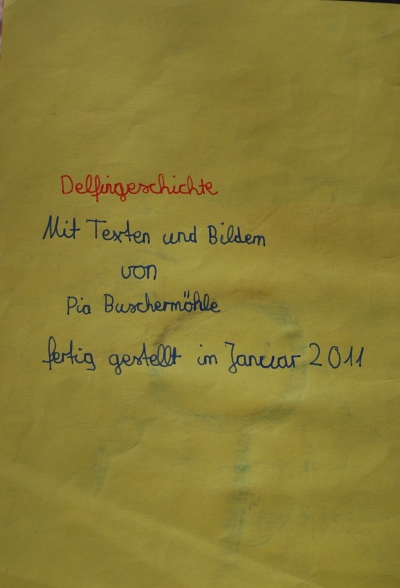 Delfingeschichte
Mit Texten und Bildern
von
Pia Buschermöhle
fertig gestellt im Januar 2011